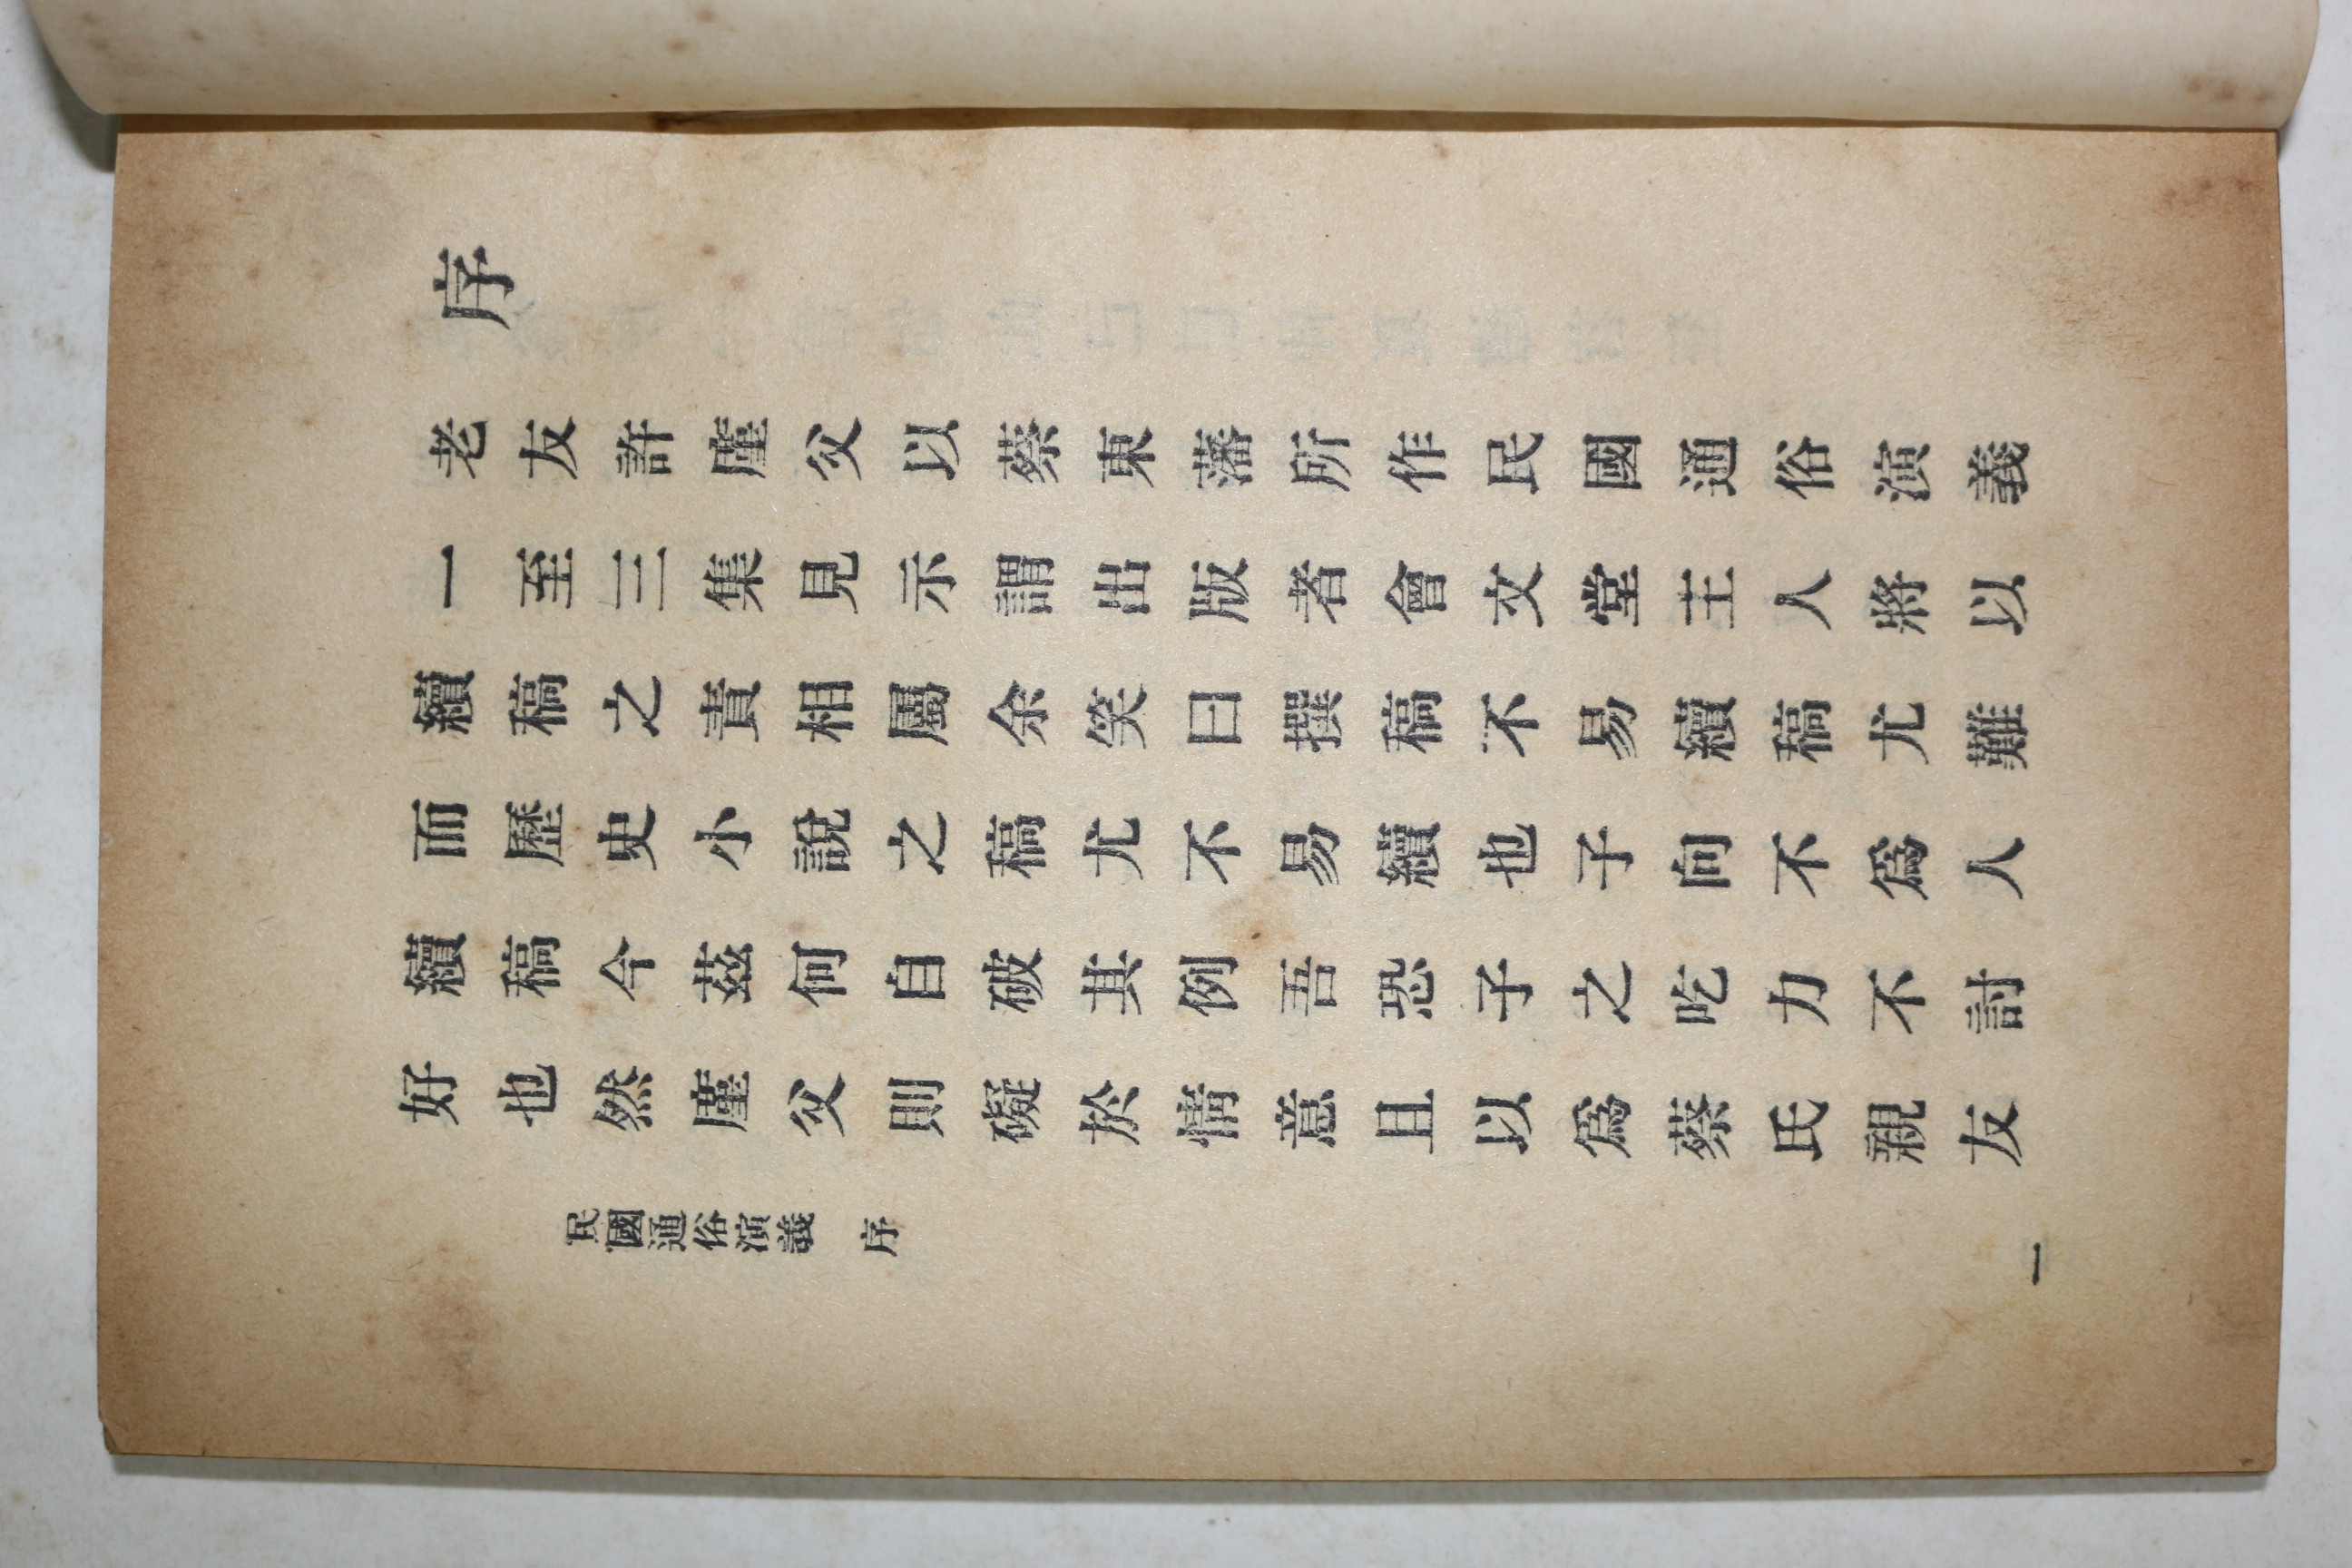 序
老友許廑父以蔡東藩所作民國通俗演義
一至三集見示謂出版者會文堂主人將以
續稿之責相屬余笑曰撰稿不易續稿尤難
而歷史小說之稿尤不易續也子向不爲人
續稿今茲何自破其例吾恐子之吃力不討
好也然廑父則礙於情意且以爲蔡氏親友
民國通俗演義 序
一